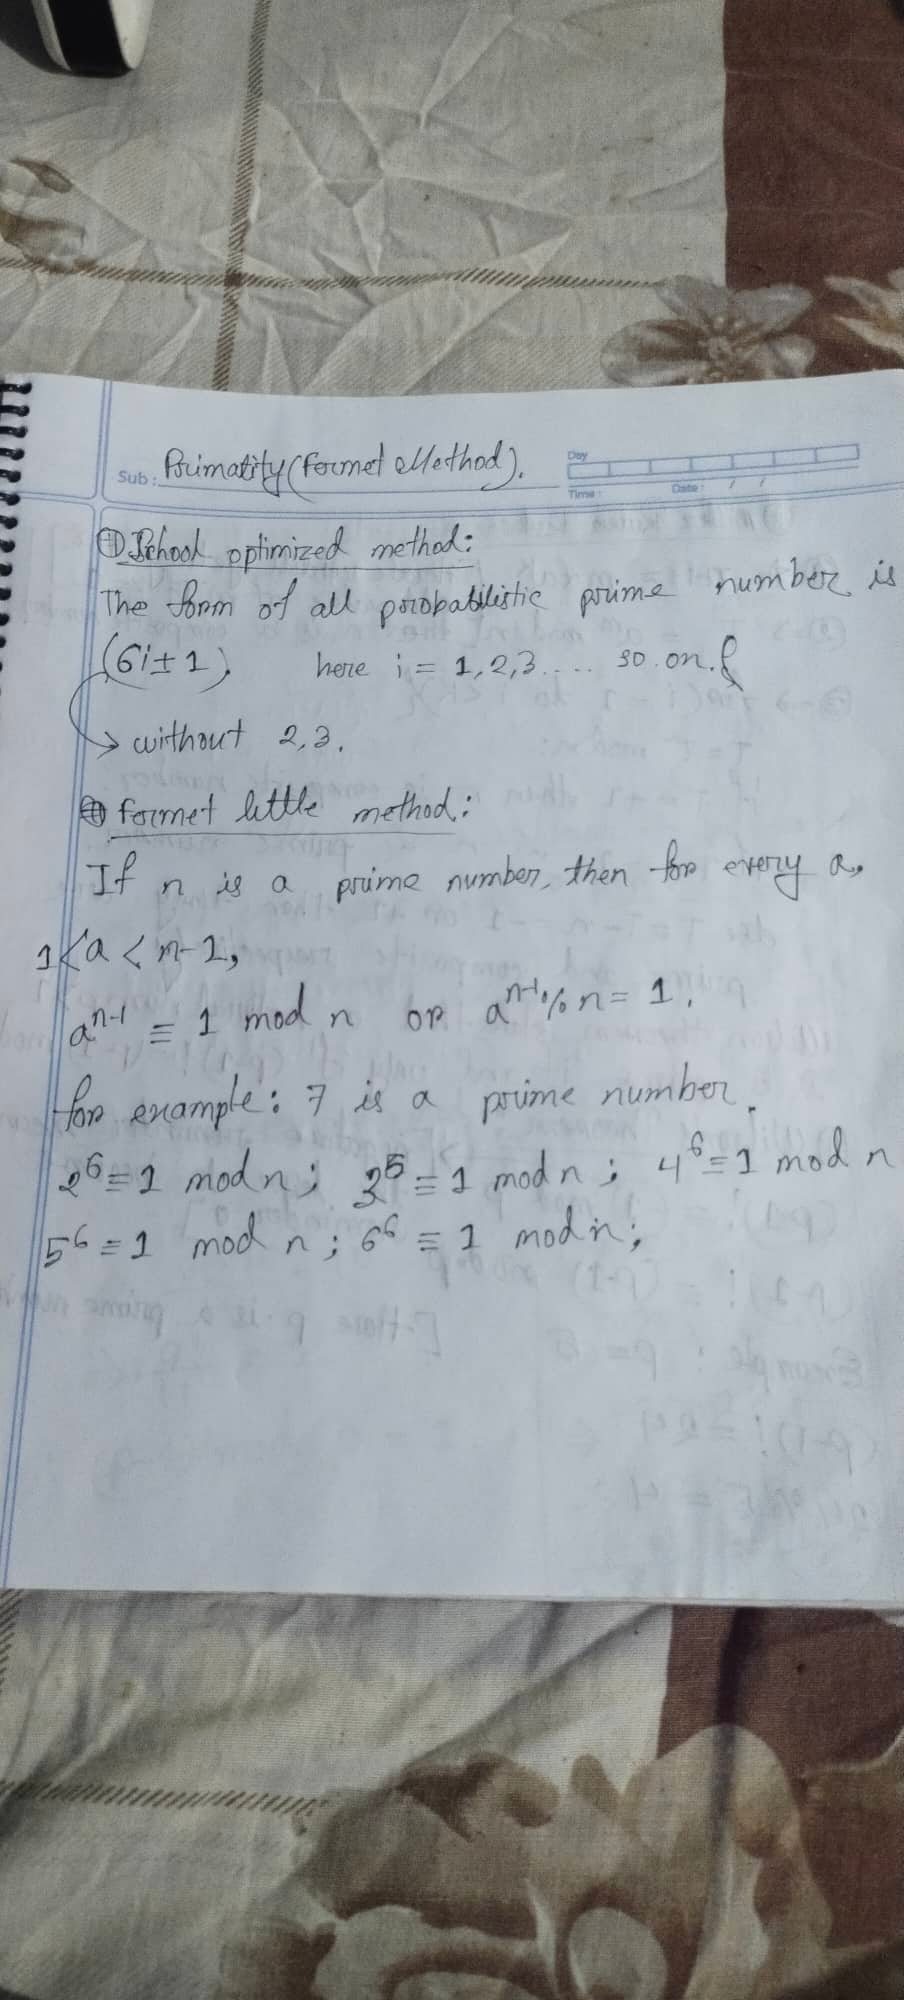 Sub: Primatity (Fermet Method).
Day
Time:
Date: / /
School optimized method:
The form of all probabilistic prime number is
(6i ± 1). here i = 1, 2, 3 .... so on.
→ without 2, 3.
Fermet little method:
If n is a prime number, then for every a,
1 < a < n-1,
a^n-1 ≡ 1 mod n or a^n-1 % n = 1.
for example: 7 is a prime number.
2^6 ≡ 1 mod n; 3^5 ≡ 1 mod n; 4^6 ≡ 1 mod n
5^6 ≡ 1 mod n; 6^6 ≡ 1 mod n;